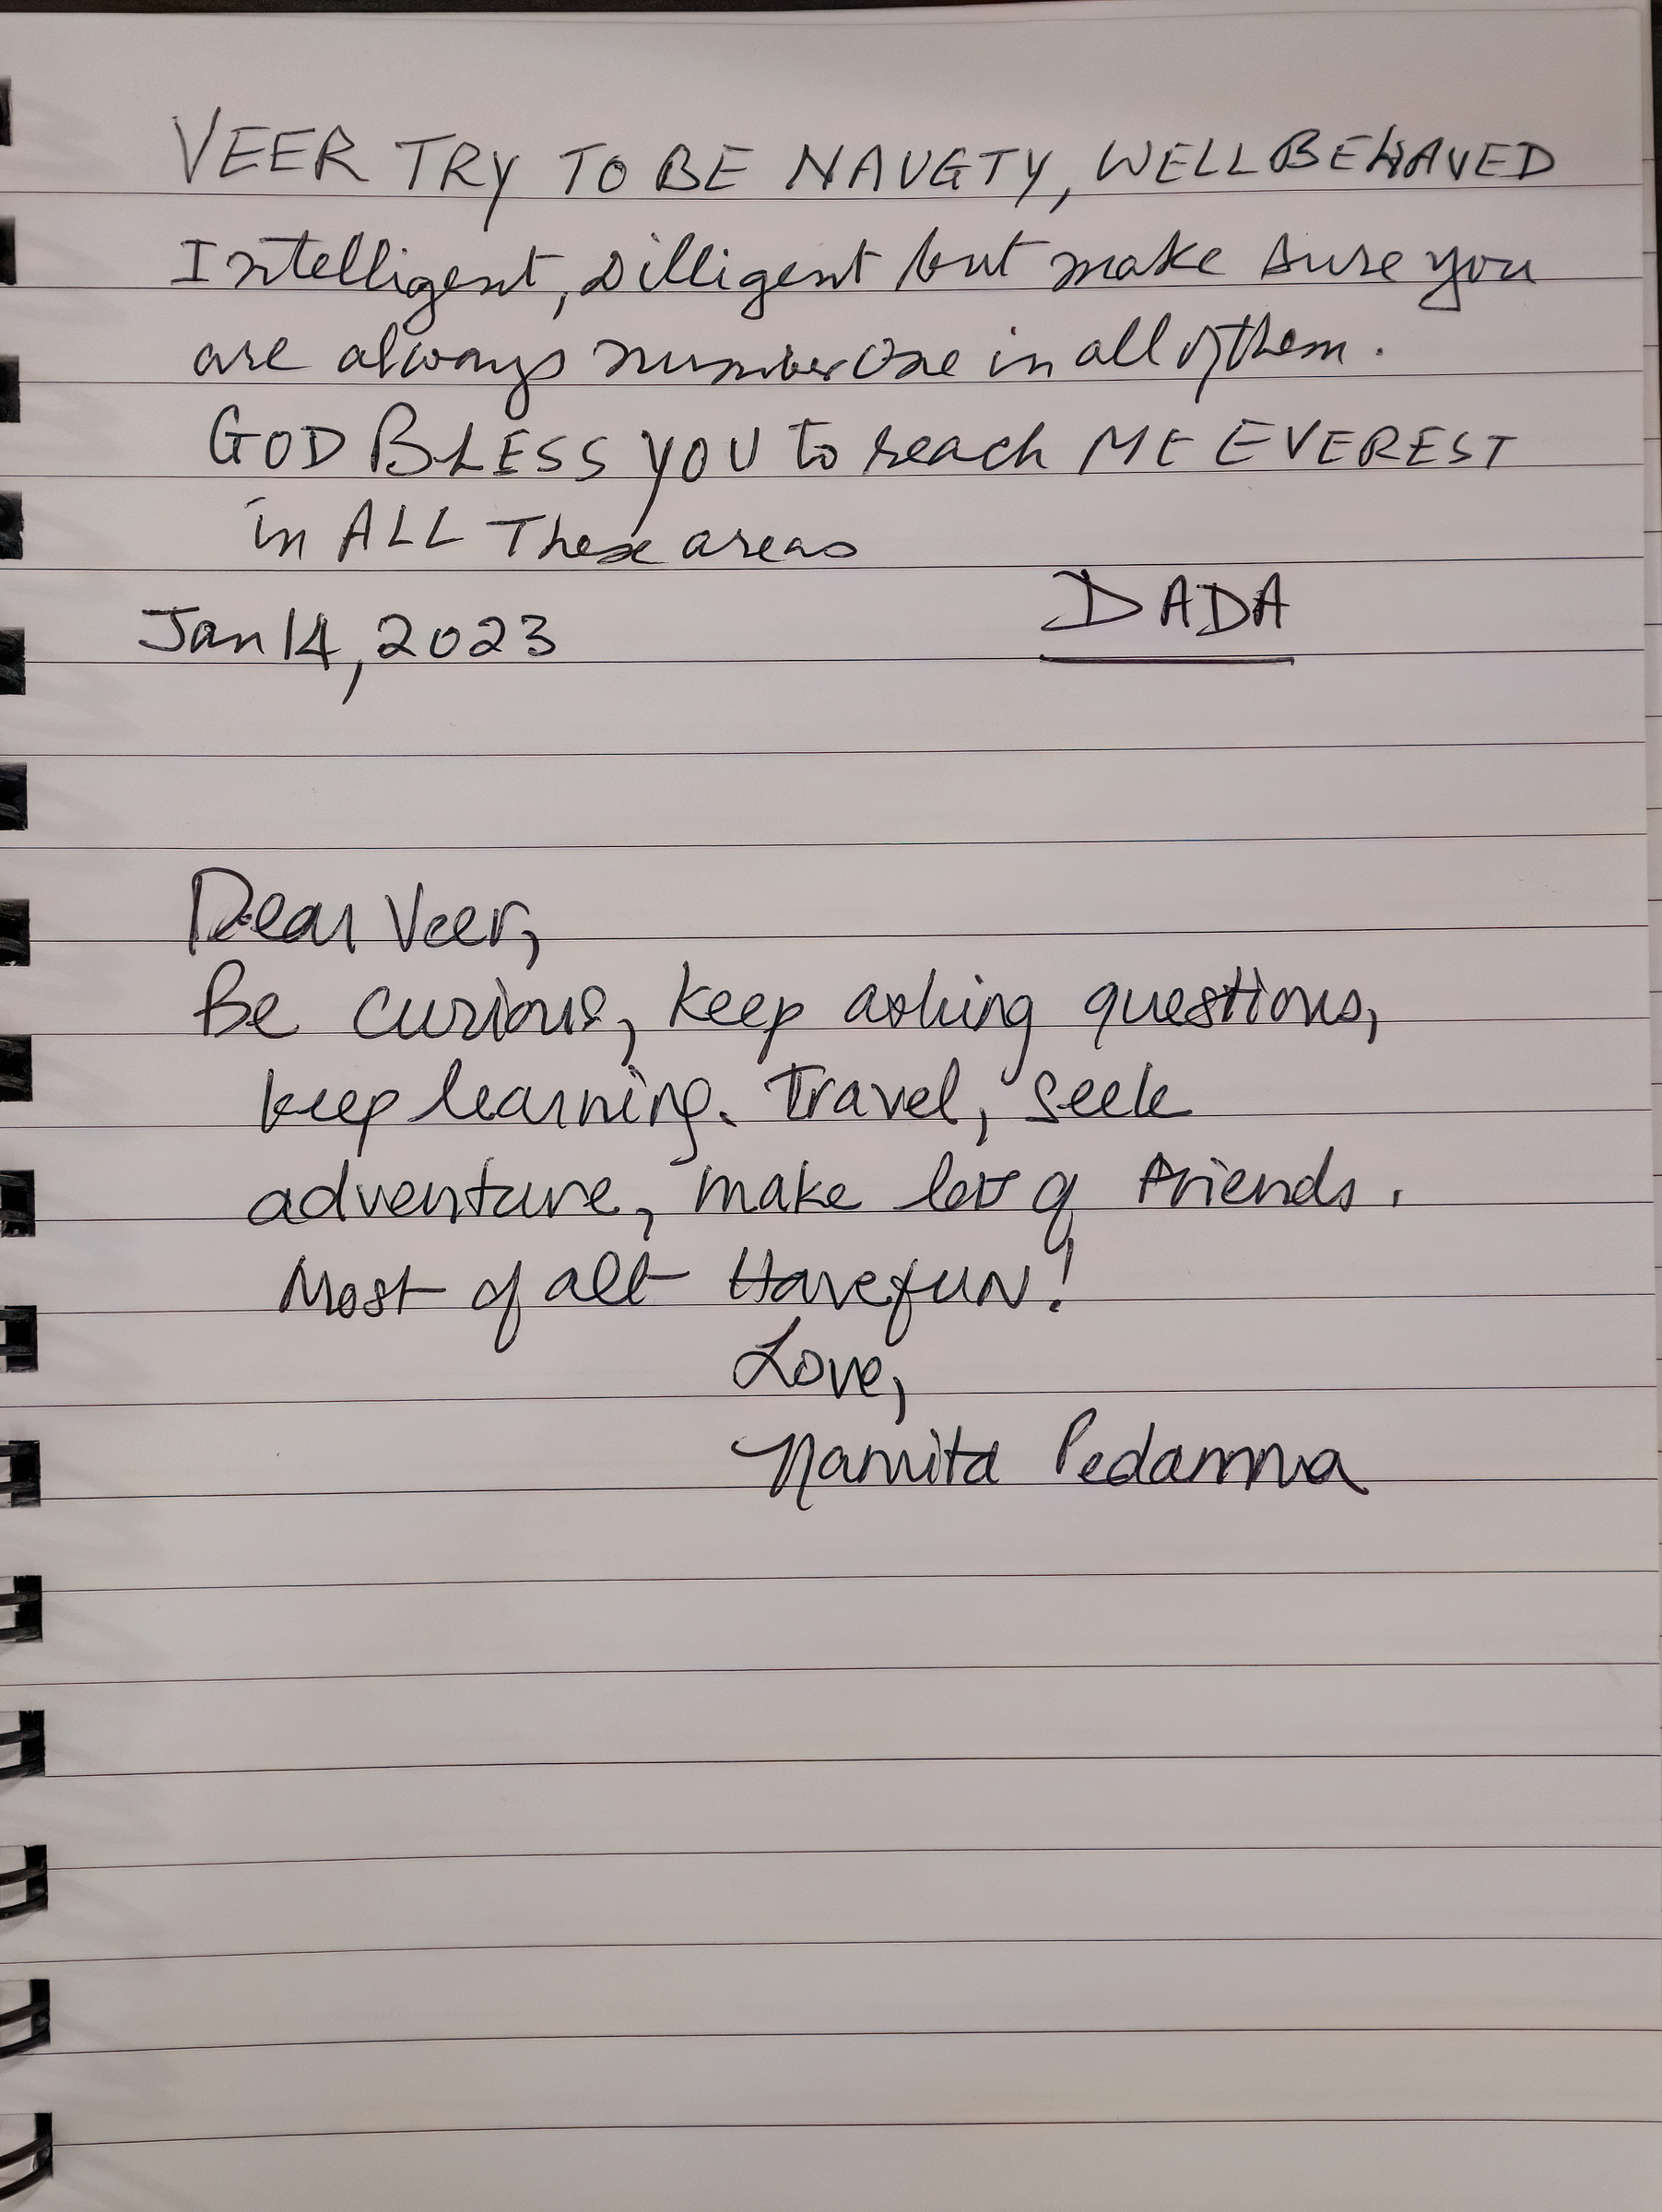 VEER TRY TO BE NAUGTY, WELL BEHAVED
Intelligent, Dilligent but make sure you
are always number one in all of them.
GOD BLESS YOU to reach MT EVEREST
in ALL These areas
DADA
Jan 14, 2023
Dear Veer,
Be curious, keep asking questions,
keep learning. Travel, seek
adventure, make lots of friends.
Most of all Have fun!
Love,
Namita Pedamma